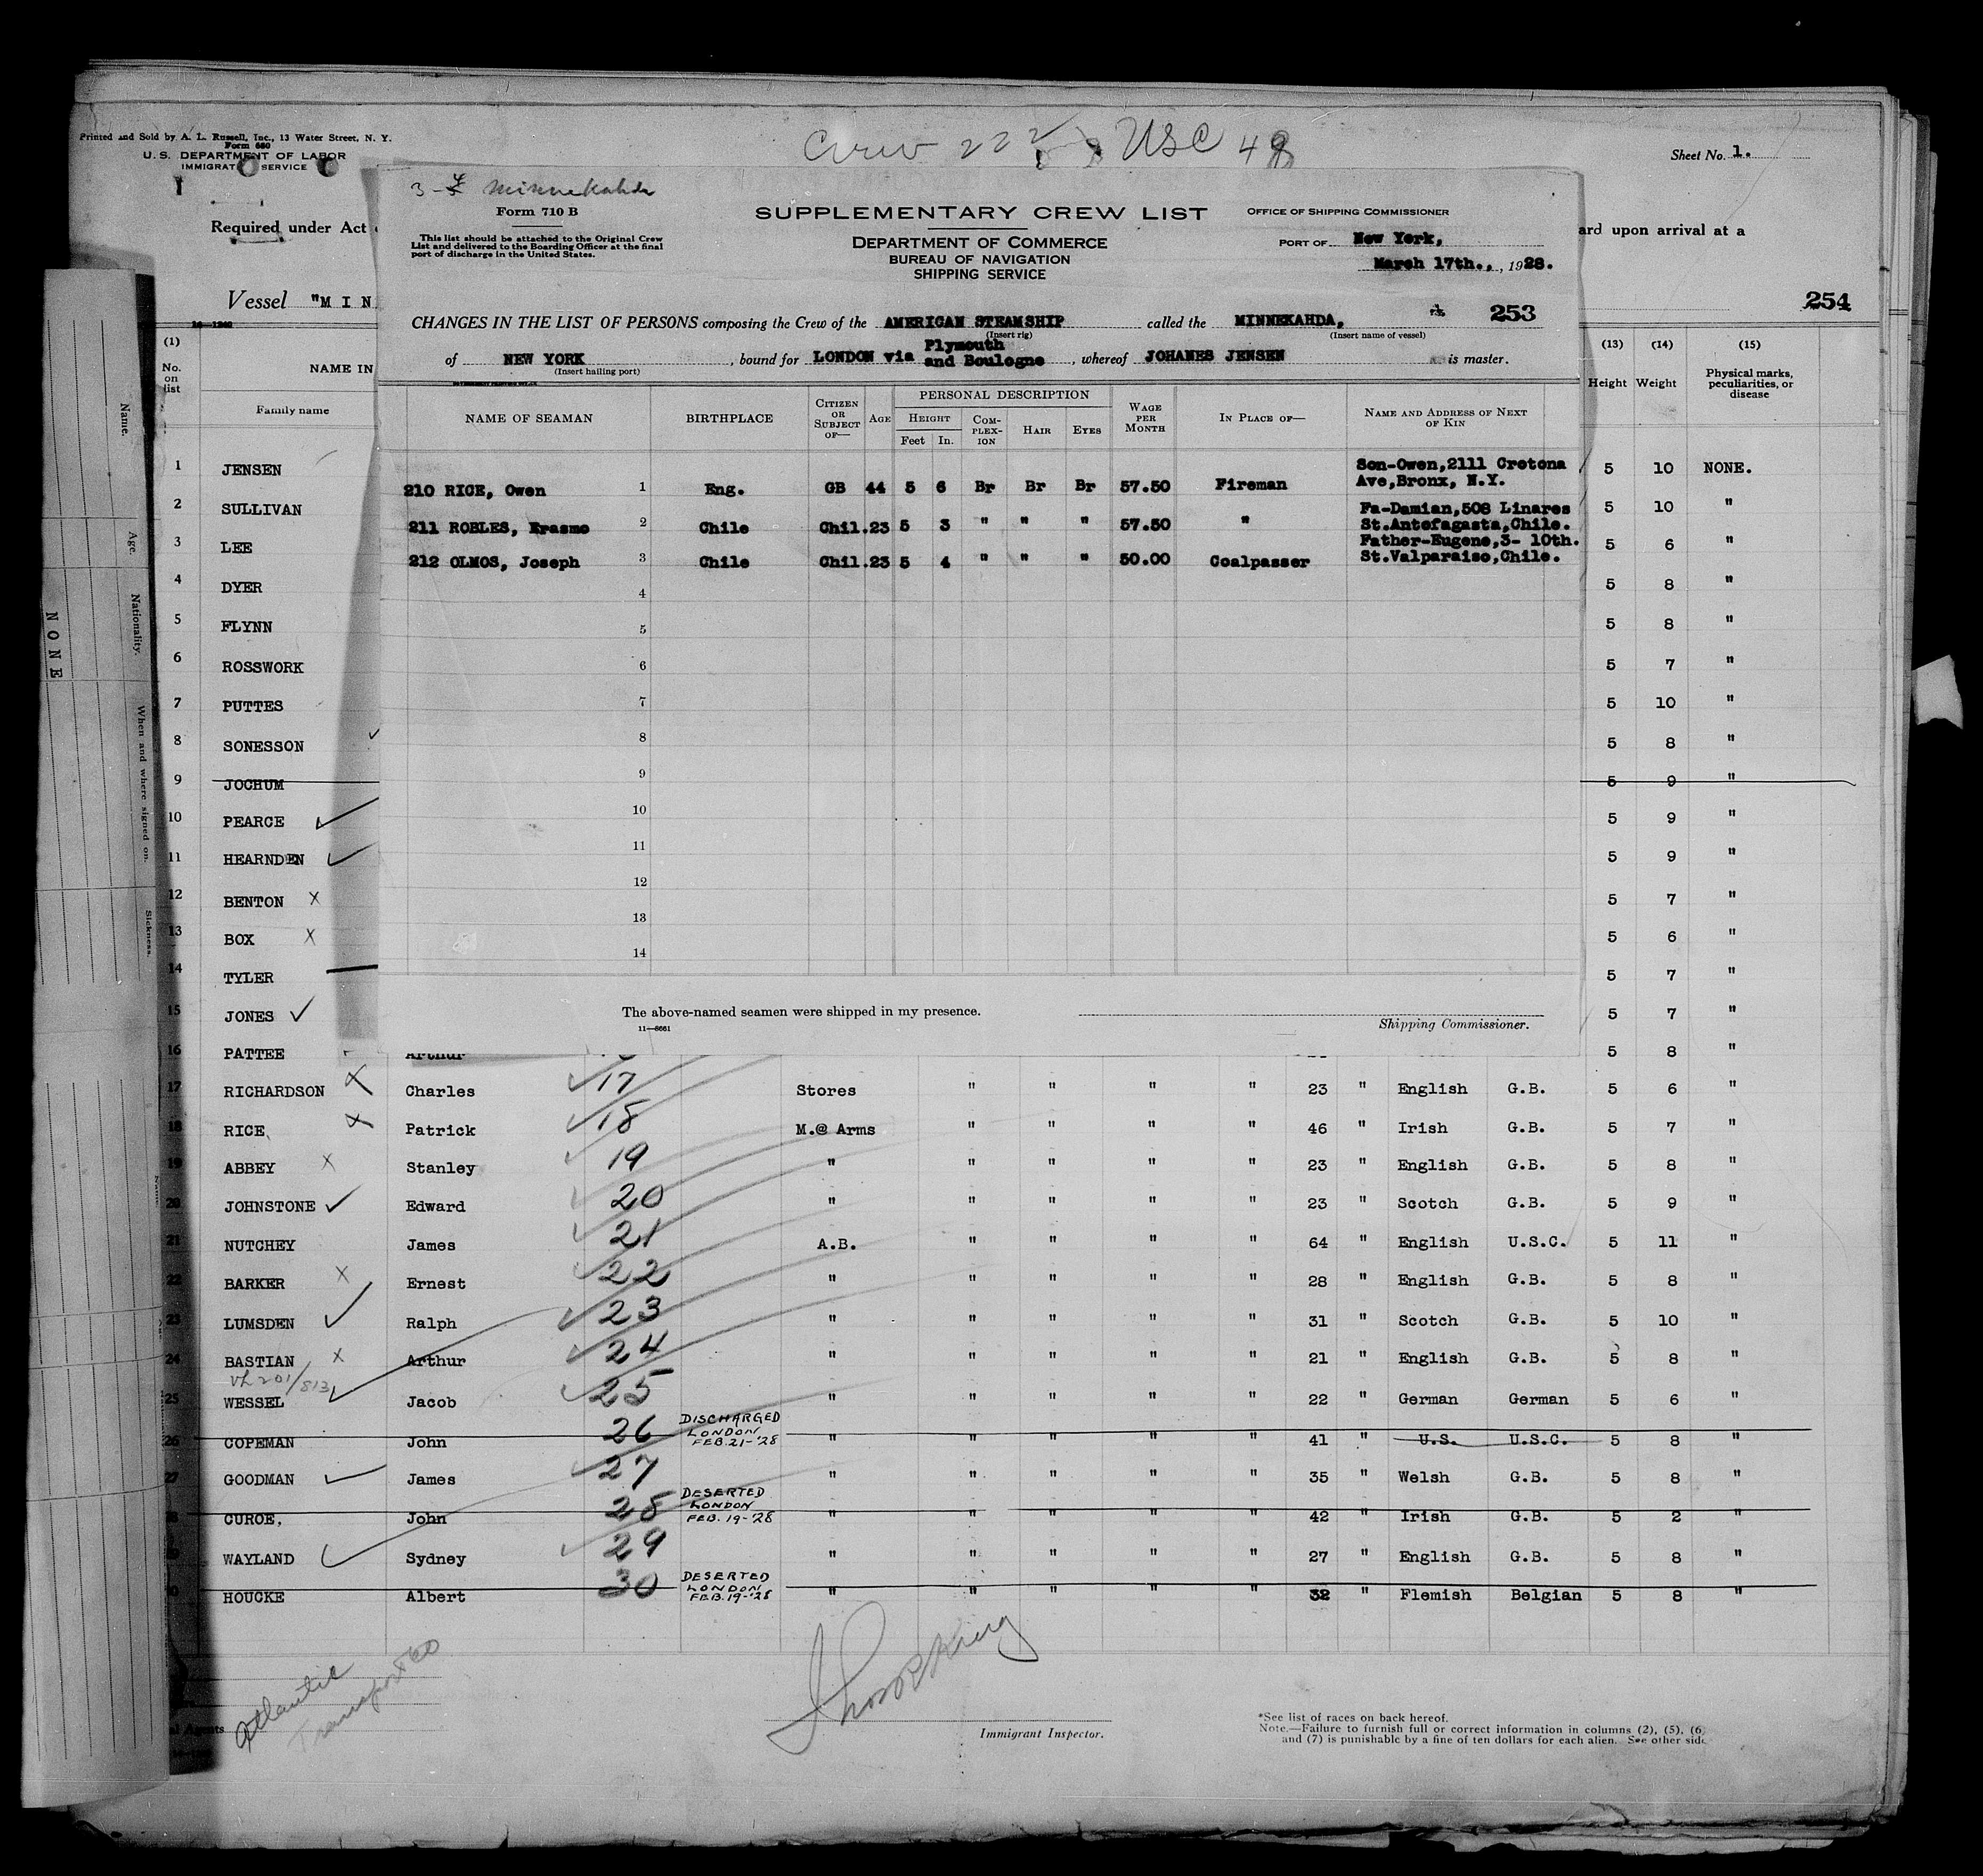 Printed and Sold by A. L. Russell, Inc., 13 Water Street, N. Y.
Form 680
U. S. DEPARTMENT OF LABOR
IMMIGRAT SERVICE
Crew 222 USC 48
Sheet No. 1.
Required under Act
ard upon arrival at a
Vessel "M I N
254
(1)
No. on list
NAME IN
Family name
(13) (14) (15)
Height Weight Physical marks, peculiarities, or disease
3- Minnekahda
Form 710 B
This list should be attached to the Original Crew
List and delivered to the Boarding Officer at the final
port of discharge in the United States.
SUPPLEMENTARY CREW LIST
DEPARTMENT OF COMMERCE
BUREAU OF NAVIGATION
SHIPPING SERVICE
OFFICE OF SHIPPING COMMISSIONER
PORT OF New York,
March 17th., , 1928.
253
CHANGES IN THE LIST OF PERSONS composing the Crew of the AMERICAN STEAMSHIP called the MINNEKAHDA,
(Insert rig) (Insert name of vessel)
of NEW YORK , bound for LONDON via Plymouth and Boulogne , whereof JOHANES JENSEN is master.
(Insert hailing port)
NAME OF SEAMAN BIRTHPLACE CITIZEN OR SUBJECT OF— AGE PERSONAL DESCRIPTION WAGE PER MONTH IN PLACE OF— NAME AND ADDRESS OF NEXT OF KIN
HEIGHT COMPLEXION HAIR EYES
Feet In.
210 RICE, Owen 1 Eng. GB 44 5 6 Br Br Br 57.50 Fireman Son-Owen,2111 Crotona Ave,Bronx, N.Y.
211 ROBLES, Erasmo 2 Chile Chil. 23 5 3 " " " 57.50 " Fa-Damian,508 Linares St.Antofagasta,Chile.
212 OLMOS, Joseph 3 Chile Chil. 23 5 4 " " " 50.00 Coalpasser Father-Eugene,3- 10th. St.Valparaiso,Chile.
4
5
6
7
8
9
10
11
12
13
14
The above-named seamen were shipped in my presence.
11—8661
Shipping Commissioner.
Name.
Age.
Nationality.
When and where signed on.
Sickness.
NONE
1 JENSEN 5 10 NONE.
2 SULLIVAN 5 10 "
3 LEE 5 6 "
4 DYER 5 8 "
5 FLYNN 5 8 "
6 ROSSWORK 5 7 "
7 PUTTES 5 10 "
8 SONESSON 5 8 "
9 JOCHUM 5 9 "
10 PEARCE 5 9 "
11 HEARNDEN 5 9 "
12 BENTON 5 7 "
13 BOX 5 6 "
14 TYLER 5 7 "
15 JONES 5 7 "
16 PATTEE Arthur 5 8 "
17 RICHARDSON Charles 17 Stores " " " " 23 " English G.B. 5 6 "
18 RICE Patrick 18 M.@ Arms " " " " 46 " Irish G.B. 5 7 "
19 ABBEY Stanley 19 " " " " " 23 " English G.B. 5 8 "
20 JOHNSTONE Edward 20 " " " " " 23 " Scotch G.B. 5 9 "
21 NUTCHEY James 21 A.B. " " " " 64 " English U.S.C. 5 11 "
22 BARKER Ernest 22 " " " " " 28 " English G.B. 5 8 "
23 LUMSDEN Ralph 23 " " " " " 31 " Scotch G.B. 5 10 "
24 BASTIAN Arthur 24 " " " " " 21 " English G.B. 5 8 "
25 WESSEL Jacob 25 " " " " " 22 " German German 5 6 "
26 COPEMAN John 26 DISCHARGED LONDON FEB.21-'28 " " " " " 41 " U.S. U.S.C. 5 8 "
27 GOODMAN James 27 " " " " " 35 " Welsh G.B. 5 8 "
8 CUROE, John 28 DESERTED LONDON FEB. 19-'28 " " " " " 42 " Irish G.B. 5 2 "
9 WAYLAND Sydney 29 " " " " " 27 " English G.B. 5 8 "
0 HOUCKE Albert 30 DESERTED LONDON FEB.19-'28 " " " " " 32 " Flemish Belgian 5 8 "
Atlantic
Transport Co
al Agents
Immigrant Inspector.
*See list of races on back hereof.
Note.—Failure to furnish full or correct information in columns (2), (5), (6)
and (7) is punishable by a fine of ten dollars for each alien. See other side